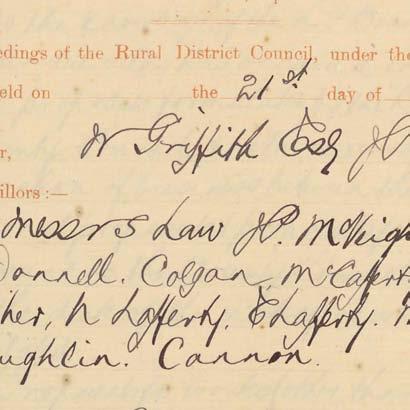 edings of the Rural District Council, under the
eld on the 21st day of
r, W Griffith Esq J P
illors:—
Messrs Law J.P. McVeig
Donnell. Colgan, McCaffert
her, N Lafferty. E Lafferty.
ughlin. Cannon.